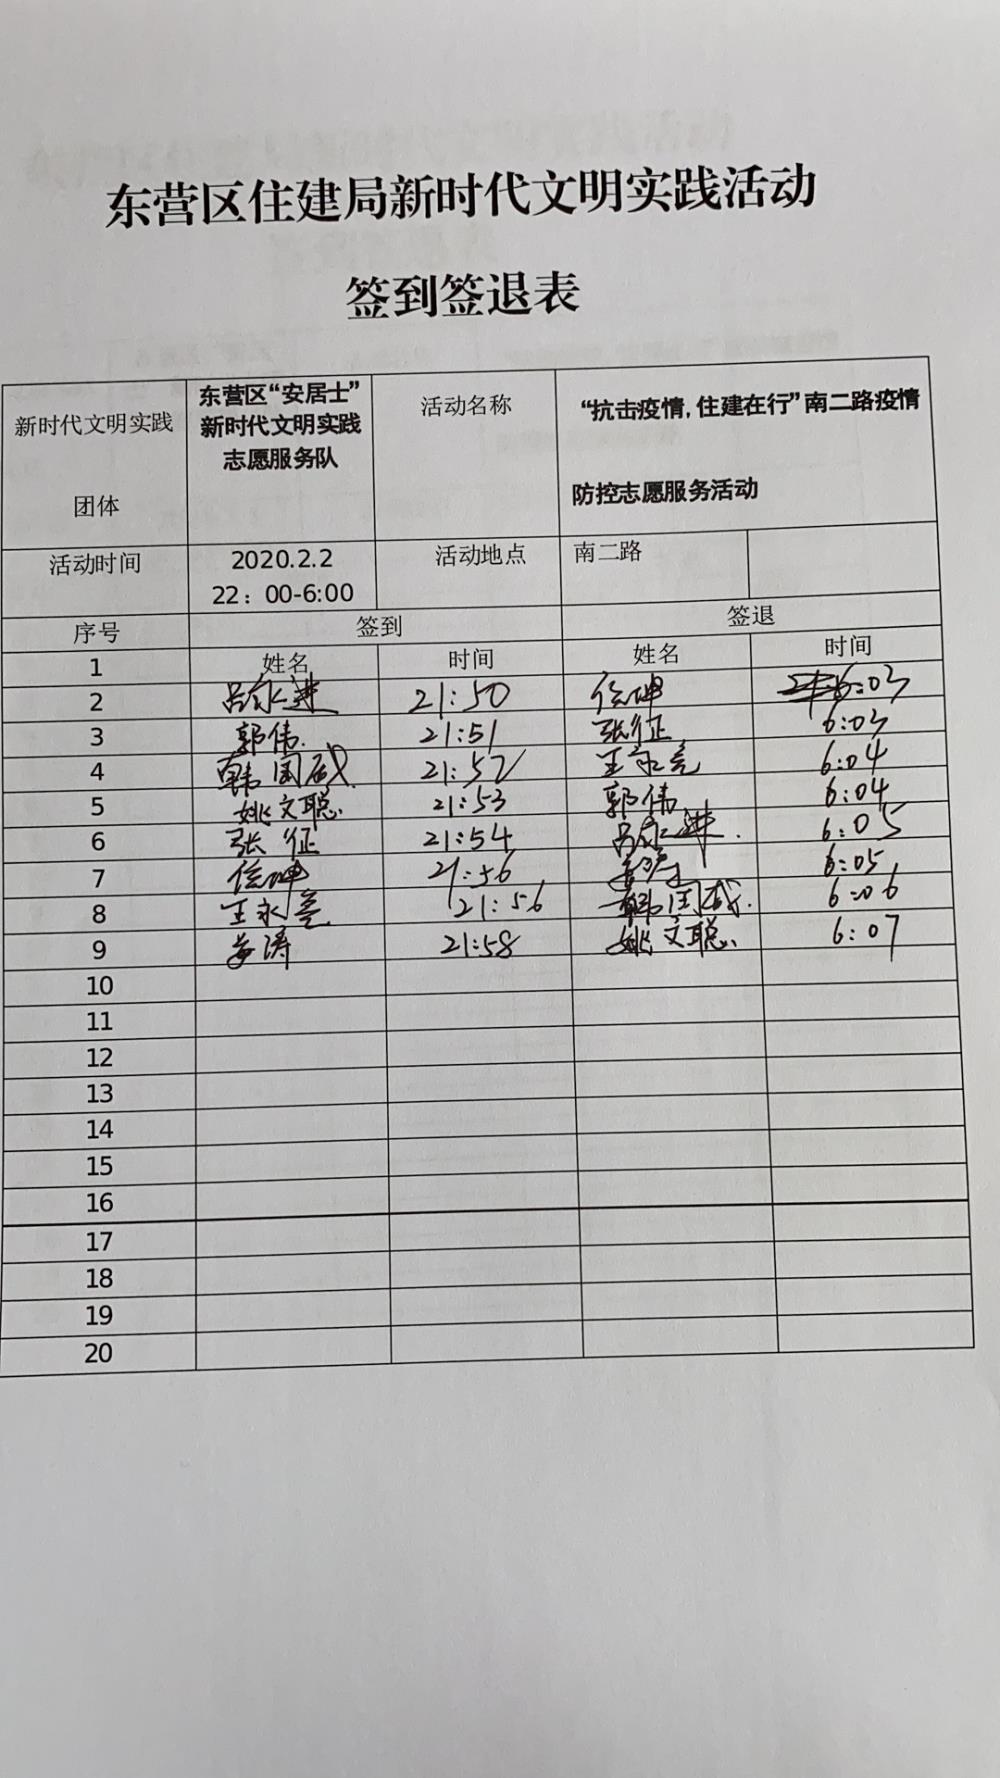 东营区住建局新时代文明实践活动
签到签退表
新时代文明实践
团体
东营区“安居士”
新时代文明实践
志愿服务队
活动名称
“抗击疫情,住建在行”南二路疫情
防控志愿服务活动
活动时间
2020.2.2
22：00-6:00
活动地点
南二路
序号 签到 签退
1 姓名 时间 姓名 时间
2 吕永进 21:50 坤 6:03
3 郭伟. 21:51 张征 6:03
4 韩国 21:52 王永亮 6:04
5 姚文聪. 21:53 郭伟 6:04
6 张征 21:54 吕永进. 6:05
7 坤 21:56 6:05
8 王永亮 21:56 韩国 6:06
9 涛 21:58 姚文聪. 6:07
10
11
12
13
14
15
16
17
18
19
20